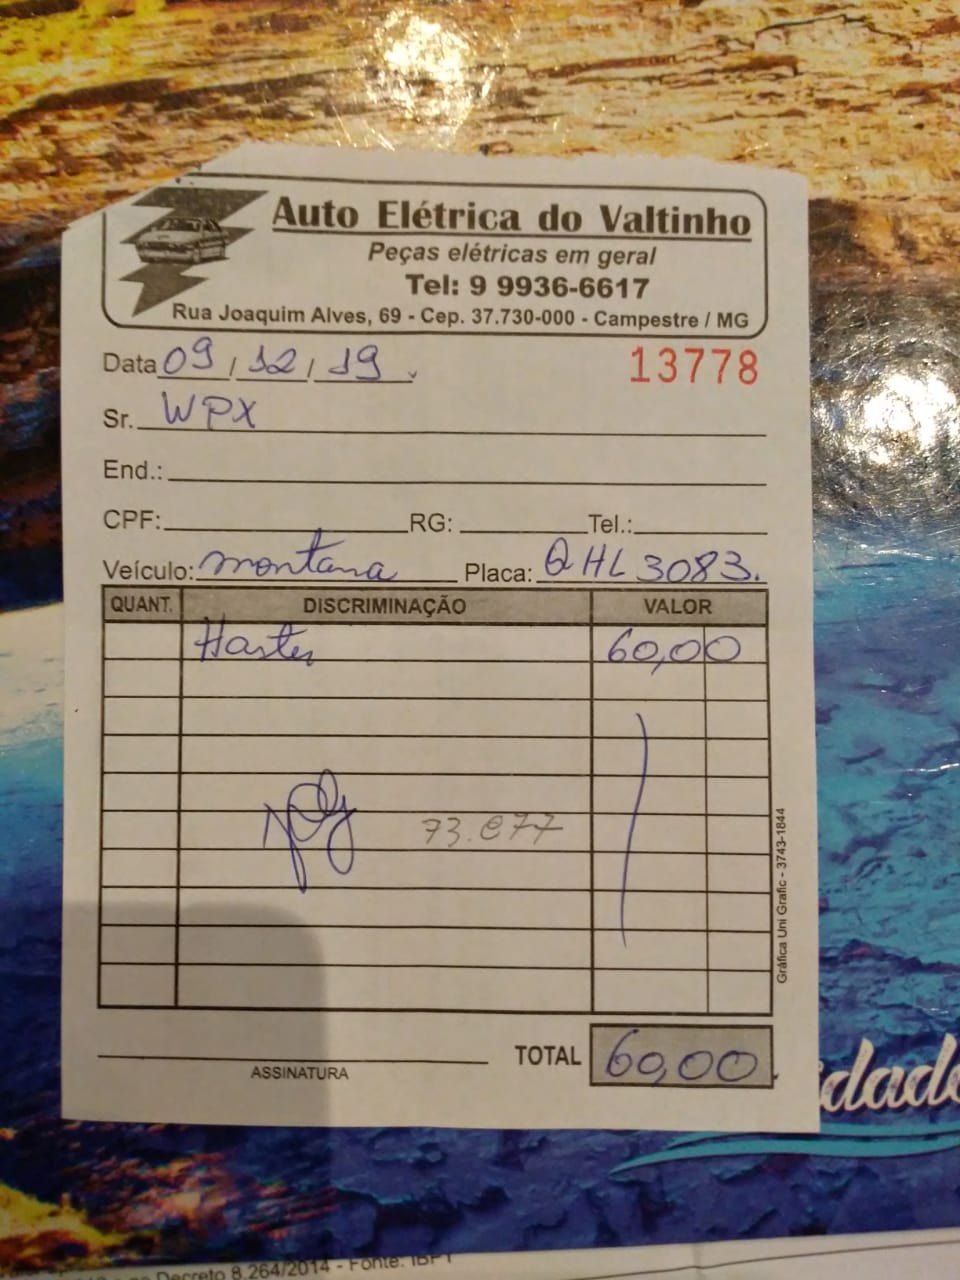 Auto Elétrica do Valtinho
Peças elétricas em geral
Tel: 9 9936-6617
Rua Joaquim Alves, 69 - Cep. 37.730-000 - Campestre / MG
Data 09 / 12 / 19
13778
Sr. WPX
End.:
CPF: RG: Tel.:
Veículo: montana Placa: QHL 3083.
QUANT. DISCRIMINAÇÃO VALOR
60,00
Gráfica Uni Grafic - 3743-1844
TOTAL 60,00
ASSINATURA
idade
Decreto 8.264/2014 - Fonte: IBPT